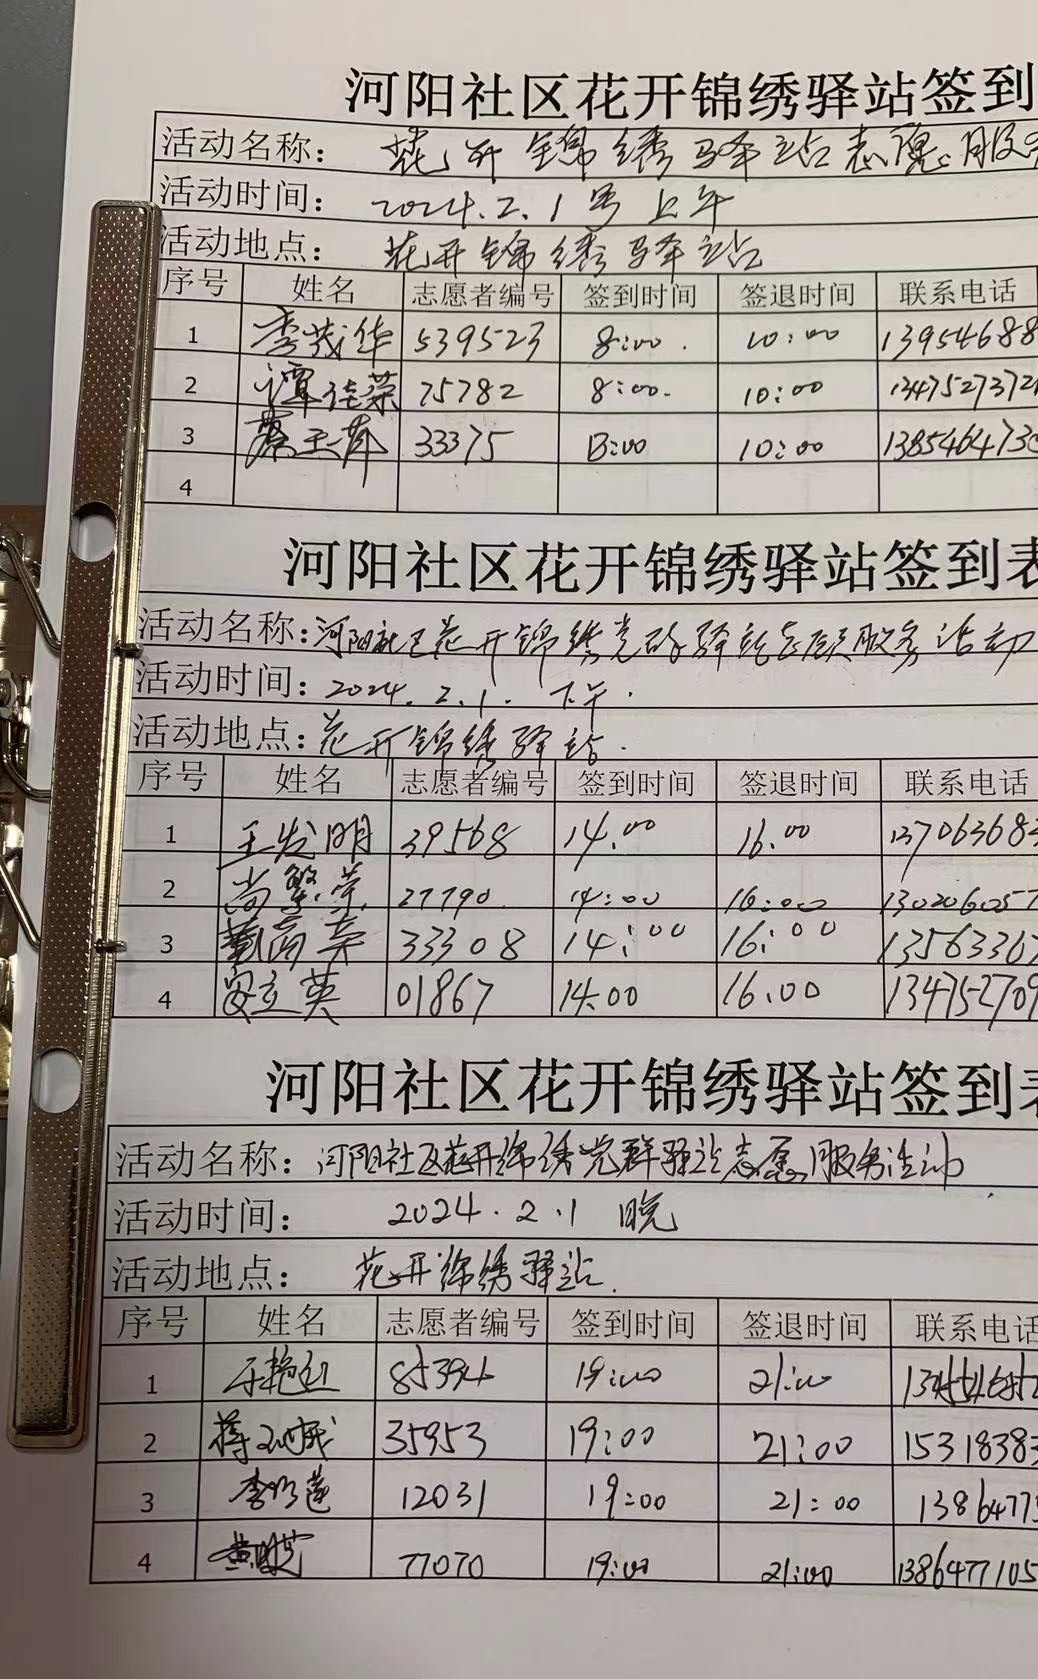 河阳社区花开锦绣驿站签到
活动名称： 花开锦绣驿站志愿服务
活动时间： 2024.2.1号上午
活动地点： 花开锦绣驿站
序号 姓名 志愿者编号 签到时间 签退时间 联系电话
1 李茂华 539523 8:00 10:00 13954688
2 谭佳荣 75782 8:00 10:00 1347527372
3 蔡玉 33375 8:00 10:00 1385464730
4
河阳社区花开锦绣驿站签到表
活动名称：河阳社区花开锦绣党群驿站志愿服务活动
活动时间：2024.2.1. 下午.
活动地点：花开锦绣驿站.
序号 姓名 志愿者编号 签到时间 签退时间 联系电话
1 王发明 39568 14.00 16.00 13706368
2 尚繁荣 27790 14:00 16:00 1302060257
3 33308 14:00 16:00 1356336
4 安立英 01867 14.00 16.00 134752709
河阳社区花开锦绣驿站签到表
活动名称：河阳社区花开锦绣党群驿站志愿服务活动
活动时间： 2024.2.1 晚
活动地点： 花开锦绣驿站.
序号 姓名 志愿者编号 签到时间 签退时间 联系电话
1 于艳红 85394 19:00 21:00
2 蒋 35953 19:00 21:00 15318383
3 李 莲 12031 19:00 21:00 1386477
4 77070 19:00 21:00 1386477105